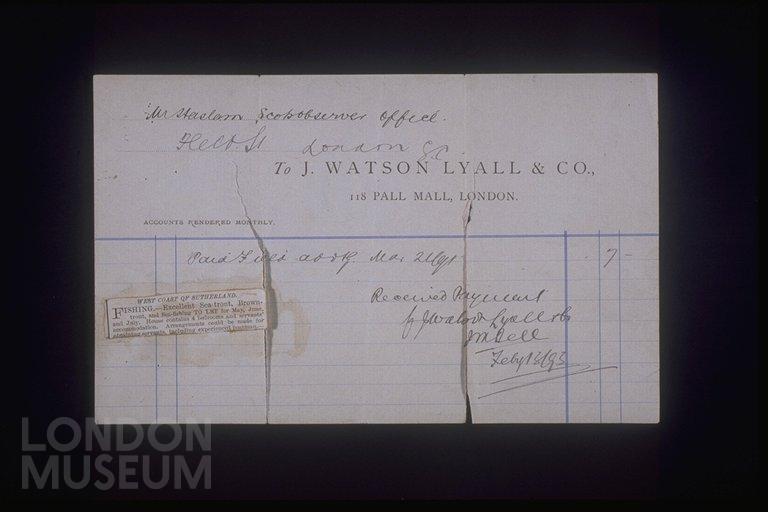 Mr Haslam Scots observer office.
Fleet St London EC
To J. WATSON LYALL & CO.,
118 PALL MALL, LONDON.
ACCOUNTS RENDERED MONTHLY.
Paid Field advtg. Mar 21/91 7 -
WEST COAST OF SUTHERLAND.
FISHING.—Excellent Sea-trout, Brown-
trout, and Sea-fishing TO LET for May, June,
and July. House contains 4 bedrooms and servants'
accommodation. Arrangements could be made for
Received Payment
J Watson Lyall & Co
Feby 13/93
LONDON
MUSEUM